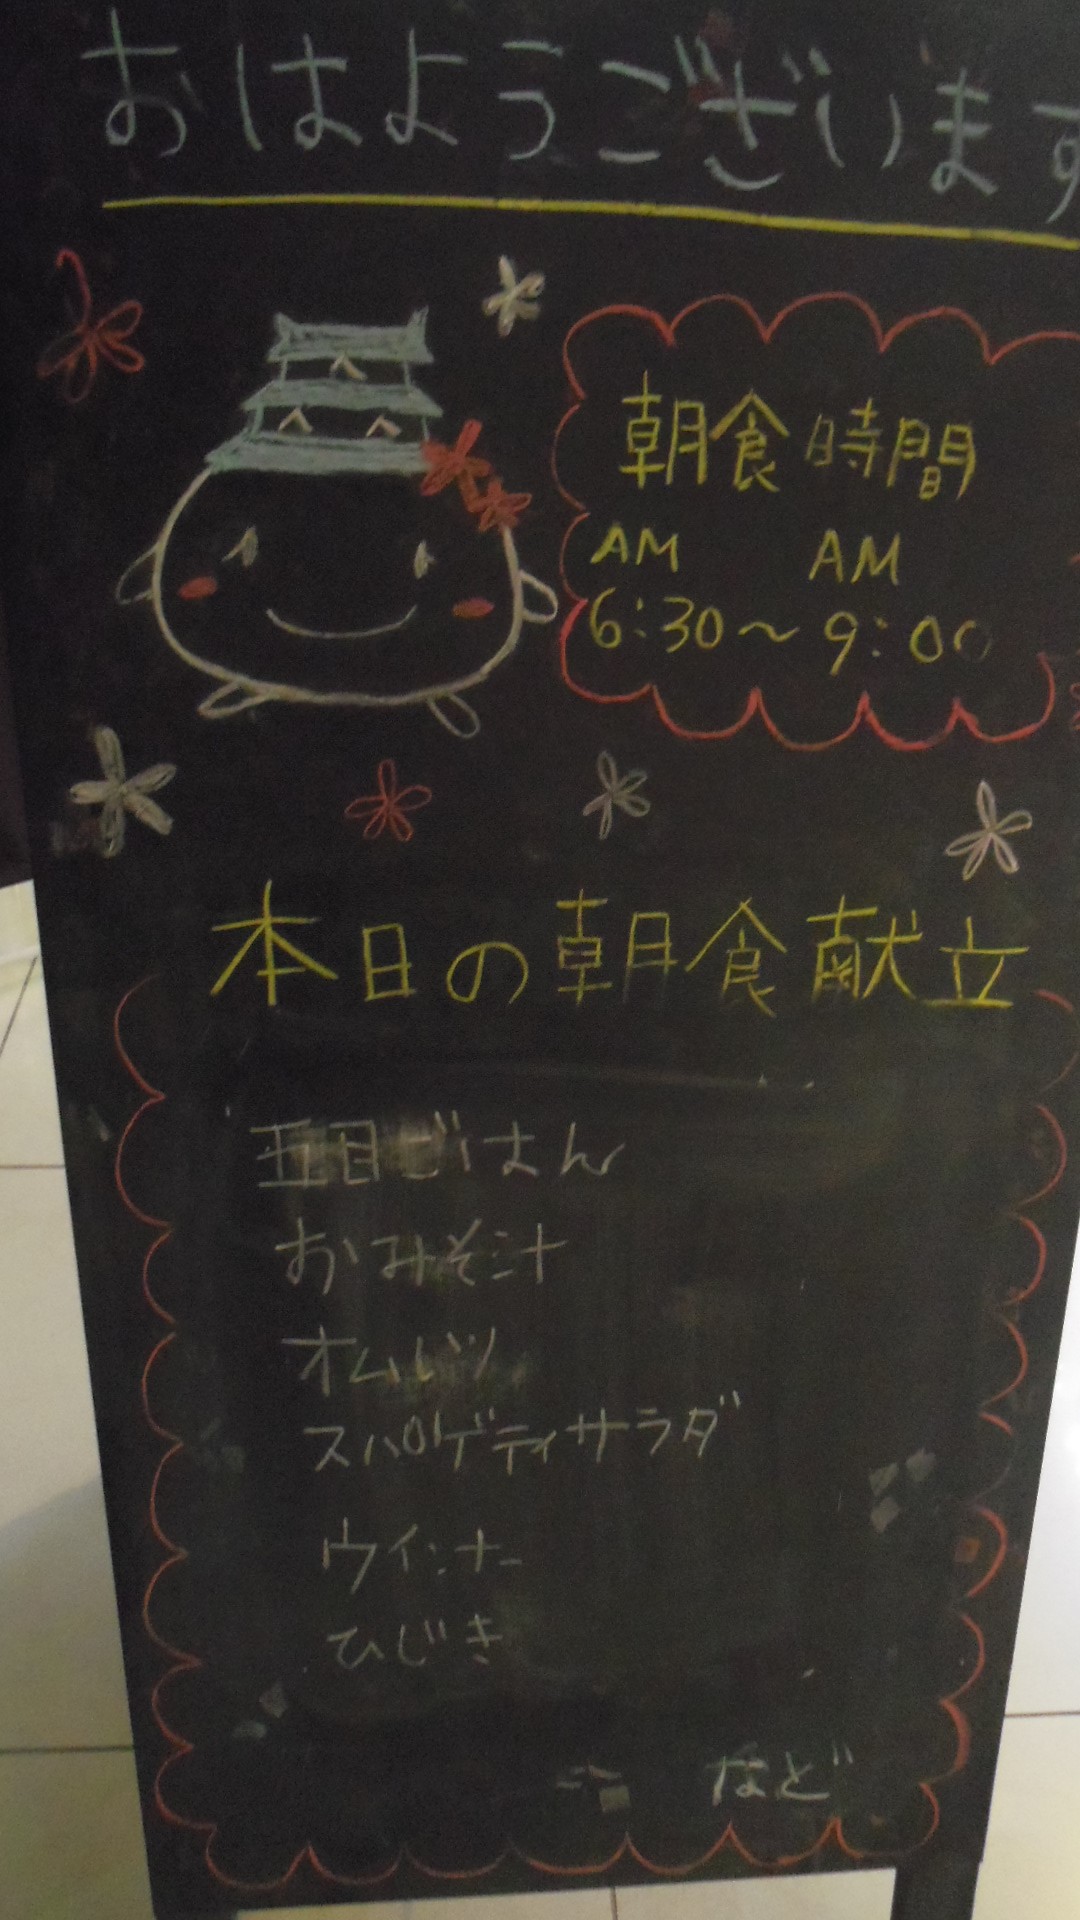 おはようございます
朝食時間
AM AM
6:30～9:00
本日の朝食献立
五目ごはん
おみそ汁
オムレツ
スパゲティサラダ
ウインナー
ひじき
など